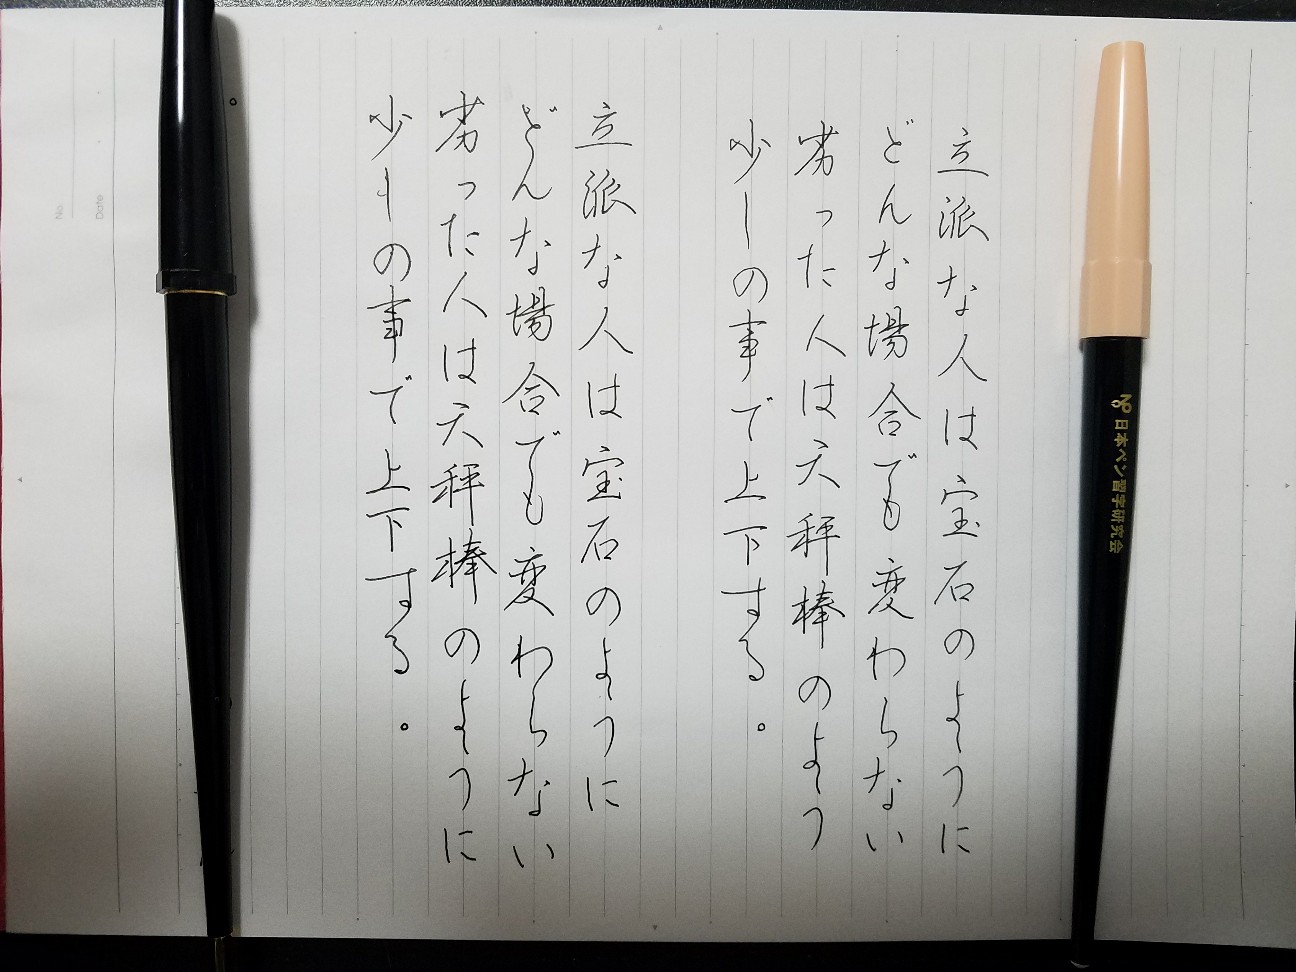 立派な人は宝石のように
どんな場合でも変わらない
劣った人は天秤棒のよう
少しの事で上下する。
立派な人は宝石のように
どんな場合でも変わらない
劣った人は天秤棒のように
少しの事で上下する。
日本ペン習字研究会
No.
Date